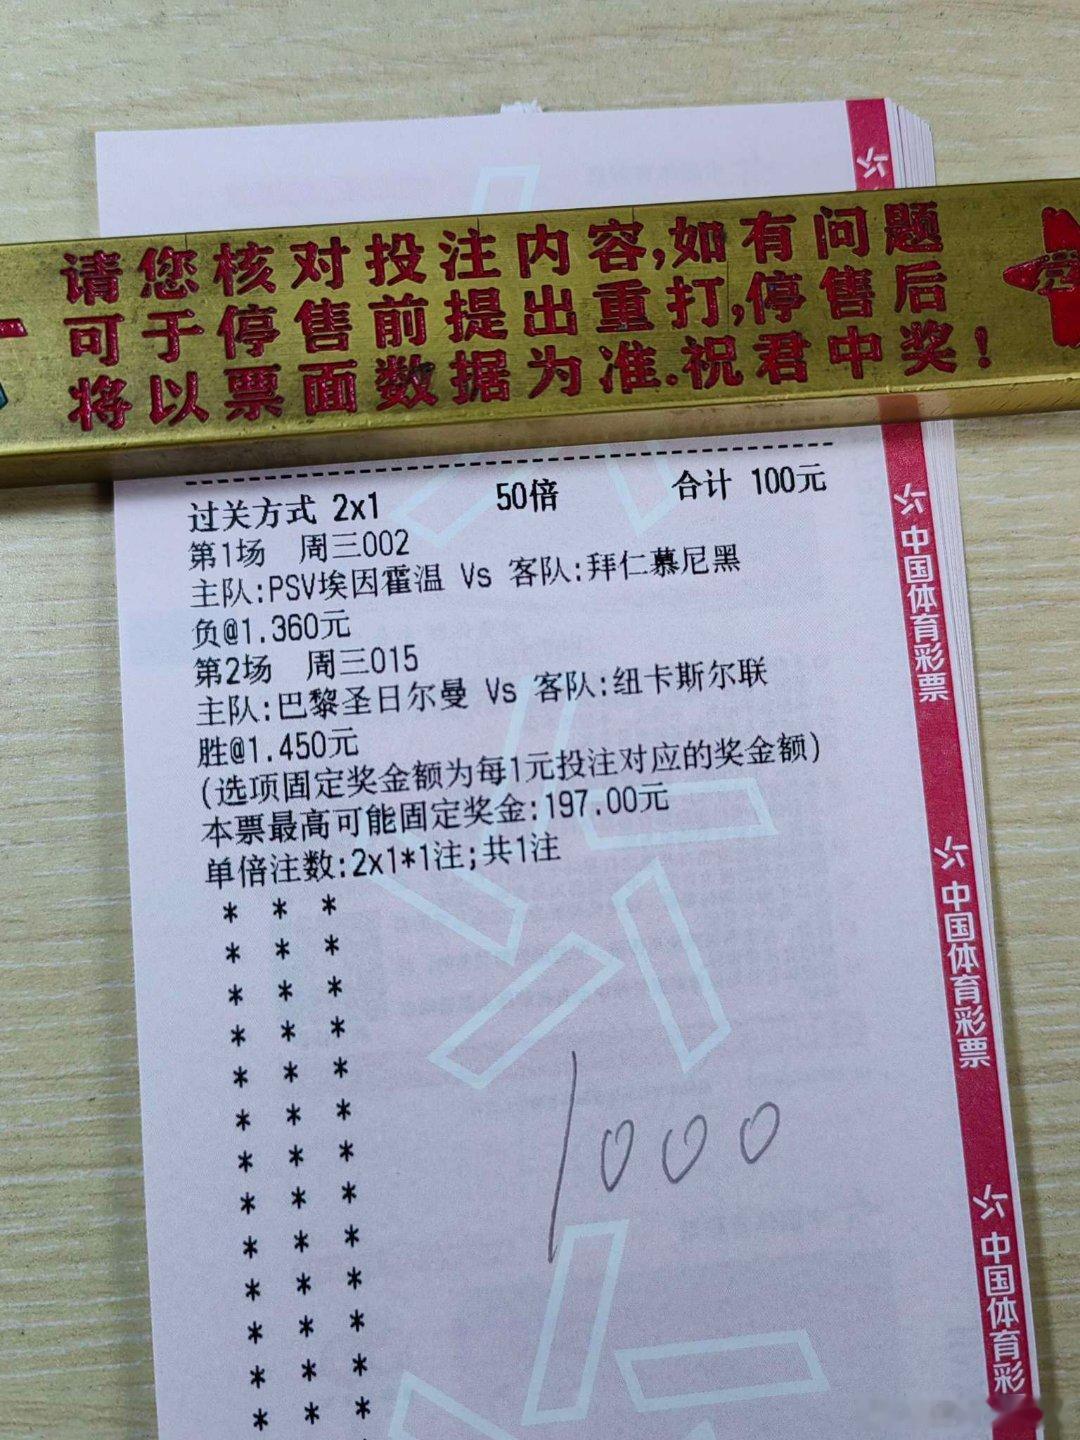 请您核对投注内容,如有问题
可于停售前提出重打,停售后
将以票面数据为准.祝君中奖!
过关方式 2x1 50倍 合计 100元
第1场 周三002
主队:PSV埃因霍温 Vs 客队:拜仁慕尼黑
负@1.360元
第2场 周三015
主队:巴黎圣日尔曼 Vs 客队:纽卡斯尔联
胜@1.450元
(选项固定奖金额为每1元投注对应的奖金额)
本票最高可能固定奖金:197.00元
单倍注数:2x1*1注;共1注
* * *
* * *
* * *
* * *
* * *
* * *
* * *
* * *
* * *
* * *
* * *
* * *
* * *
1000
中国体育彩票
中国体育彩票
中国体育彩